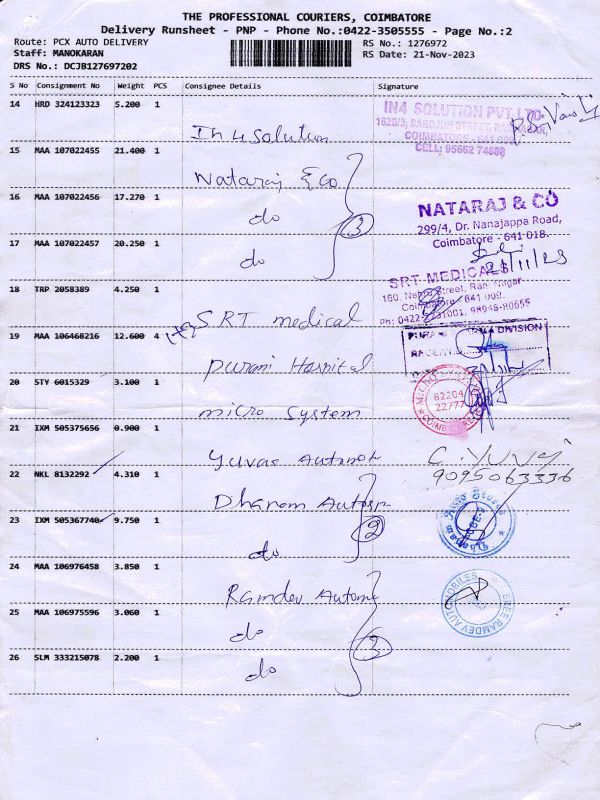 THE PROFESSIONAL COURIERS, COIMBATORE
Delivery Runsheet - PNP - Phone No.:0422-3505555 - Page No.:2
Route: PCX AUTO DELIVERY
RS No.: 1276972
Staff: MANOKARAN
RS Date: 21-Nov-2023
DRS No.: DCJB127697202
S No Consignment No Weight PCS Consignee Details Signature
14 HRD 324123323 5.200 1
IN4 SOLUTION PVT LTD
162B/3, SAROJINI STREET, RAM NAGAR,
COIMBATORE - 641 009.
CELL: 95662 74888
In 4 Solution
15 MAA 107022455 21.400 1
Nataraj & Co
16 MAA 107022456 17.270 1
NATARAJ & CO
299/4, Dr. Nanajappa Road,
Coimbatore - 641 018.
do
3
17 MAA 107022457 20.250 1
21/11/23
do
SRT MEDICALS
160, Nehru Street, Ram Nagar
Coimbatore - 641 009.
18 TRP 2058389 4.250 1
SRT medical
19 MAA 106468216 12.600 4
DIVISION
Purani Hospital
20 STY 6015329 3.100 1
82204
22777
micro System
21 IXM 505375656 0.900 1
Yuvas Autanot
C. YUVI
9095063336
22 NKL 8132292 4.310 1
Dharam Autosp
23 IXM 505367740 9.750 1
2
do
24 MAA 106976458 3.850 1
Ramdev Autome
SREE RAMDEV AUTOMOBILES
25 MAA 106975596 3.060 1
do
3
26 SLM 333215078 2.200 1
do